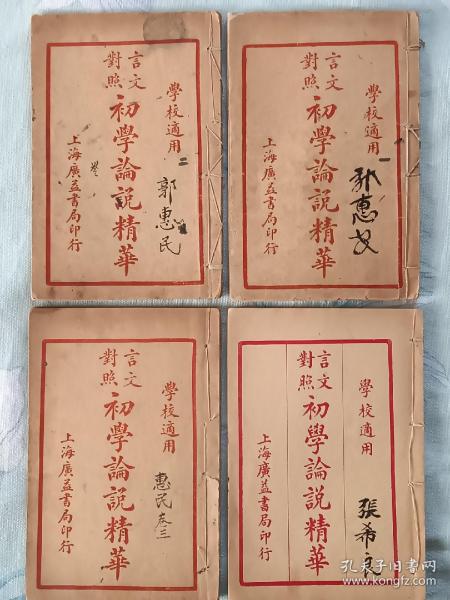 學校適用
二
郭惠民
言文
對照
初學論說精華
上海廣益書局印行
學校適用
一
郭惠民
言文
對照
初學論說精華
上海廣益書局印行
學校適用
惠民卷三
言文
對照
初學論說精華
上海廣益書局印行
學校適用
張希良
言文
對照
初學論說精華
上海廣益書局印行
孔夫子旧书网